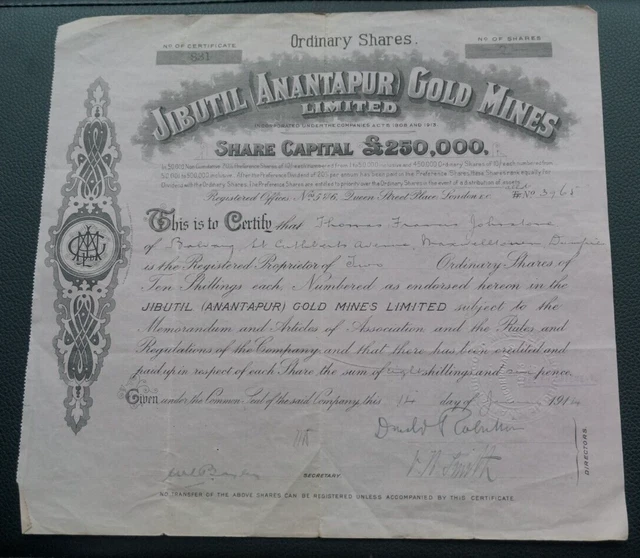 Nº OF CERTIFICATE
Ordinary Shares.
Nº OF SHARES
JIBUTIL (ANANTAPUR) GOLD MINES
LIMITED
INCORPORATED UNDER THE COMPANIES ACTS, 1908 AND 1913.
SHARE CAPITAL £250,000.
Dividend with the Ordinary Shares. The Preference Shares are entitled to priority over the Ordinary Shares in the event of a distribution of assets.
Registered Offices Nos 5 & 6, Queen Street Place, London E.C.
This is to Certify that Thomas Johnstone
of St Cuthberts Avenue, Maxwelltown, Dumfries
is the Registered Proprietor of Two Ordinary Shares of
Ten Shillings each, Numbered as endorsed hereon in the
JIBUTIL (ANANTAPUR) GOLD MINES LIMITED subject to the
Memorandum and Articles of Association and the Rules and
Regulations of the Company and that there has been credited and
paid up in respect of each Share, the sum of eight shillings and pence.
Given under the Common Seal of the said Company, this 14 day of 1914
DIRECTORS
SECRETARY
NO TRANSFER OF THE ABOVE SHARES CAN BE REGISTERED UNLESS ACCOMPANIED BY THIS CERTIFICATE.